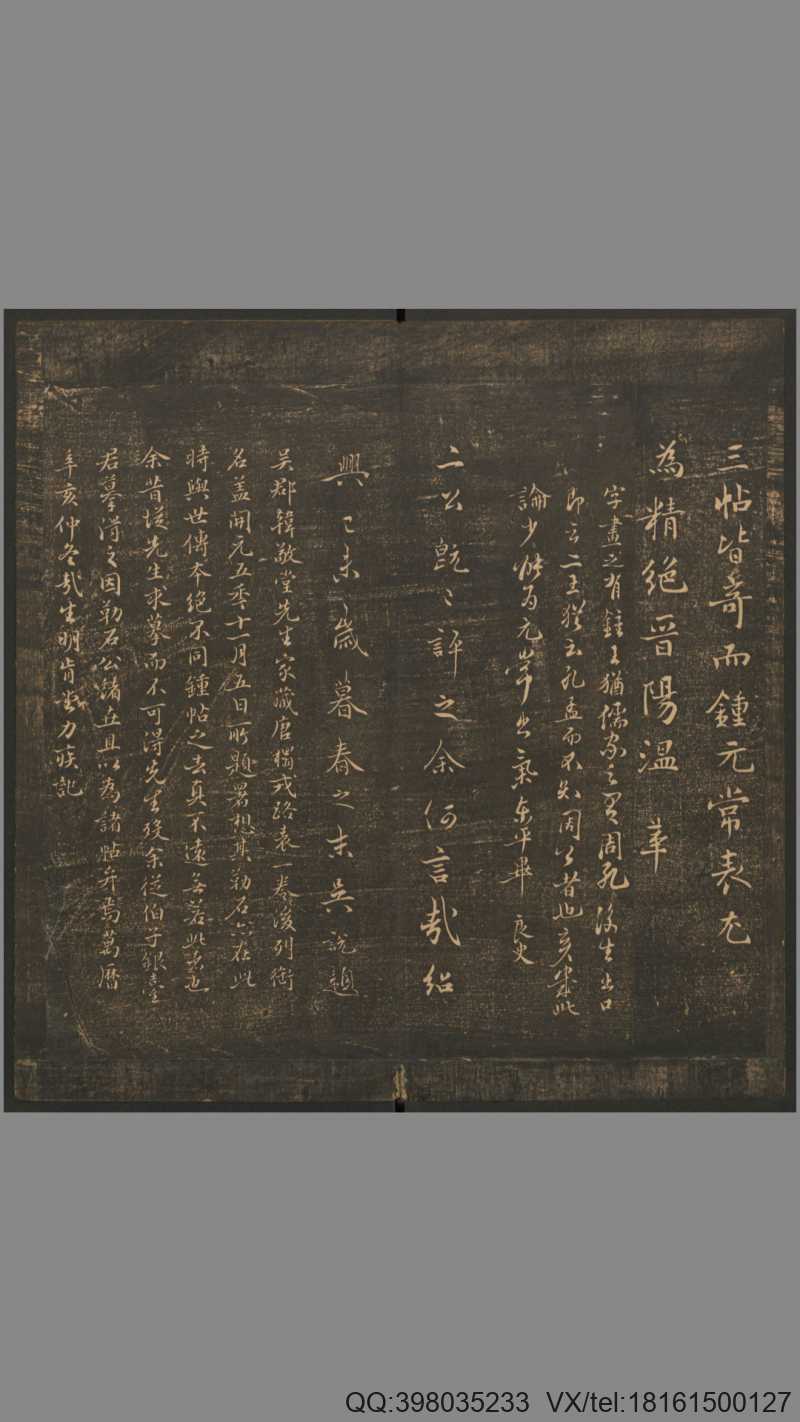 三帖皆奇而鍾元常表尤
為精絕晉陽溫革
字畫之有鍾王猶儒家之有周孔後生出口
即云二王猶云孔孟而不知周公者也 此
論少 為元常出氣東平畢良史
二公既〻評之余何言哉紹
興己未歲暮春之末吳說題
吳郡韓敬堂先生家藏唐摹戎路表一卷後列銜
名盖開元五年十一月五日所題署想其勒石亦在此
時與世傳本絕不同鍾帖之去真不遠無若此表
余昔從先生求摹而不可得先生歿余從伯子銀臺
君摹得之因勒石公諸 且以為諸帖弁焉萬曆
辛亥仲冬哉生明肯堂力疾記
QQ:398035233 VX/tel:18161500127